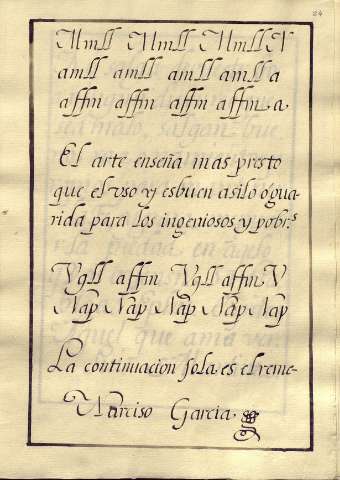 24
Mmll Mmll MmllV
amll amll amll amll a
affin affin affin affin.a.
El arte enseña mas presto
que el vso vj esbuen asilo ó gua
rida para los ingeniosos y pobr.s
Vqll affin Vqll affin V
Nap Nap Nap Nap Nap
La continuacion sola es el reme-
Narciso Garcia.